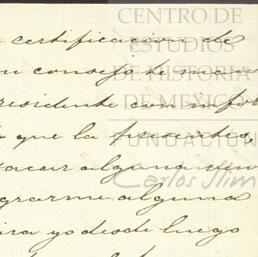 CENTRO DE
ESTUDIOS
DE HISTORIA
DE MÉXICO
FUNDACIÓN
Carlos Slim
certificacion de
consejo de
residente con
que la presentes,
tacar alguna
grarme alguna
ira yo desde luego